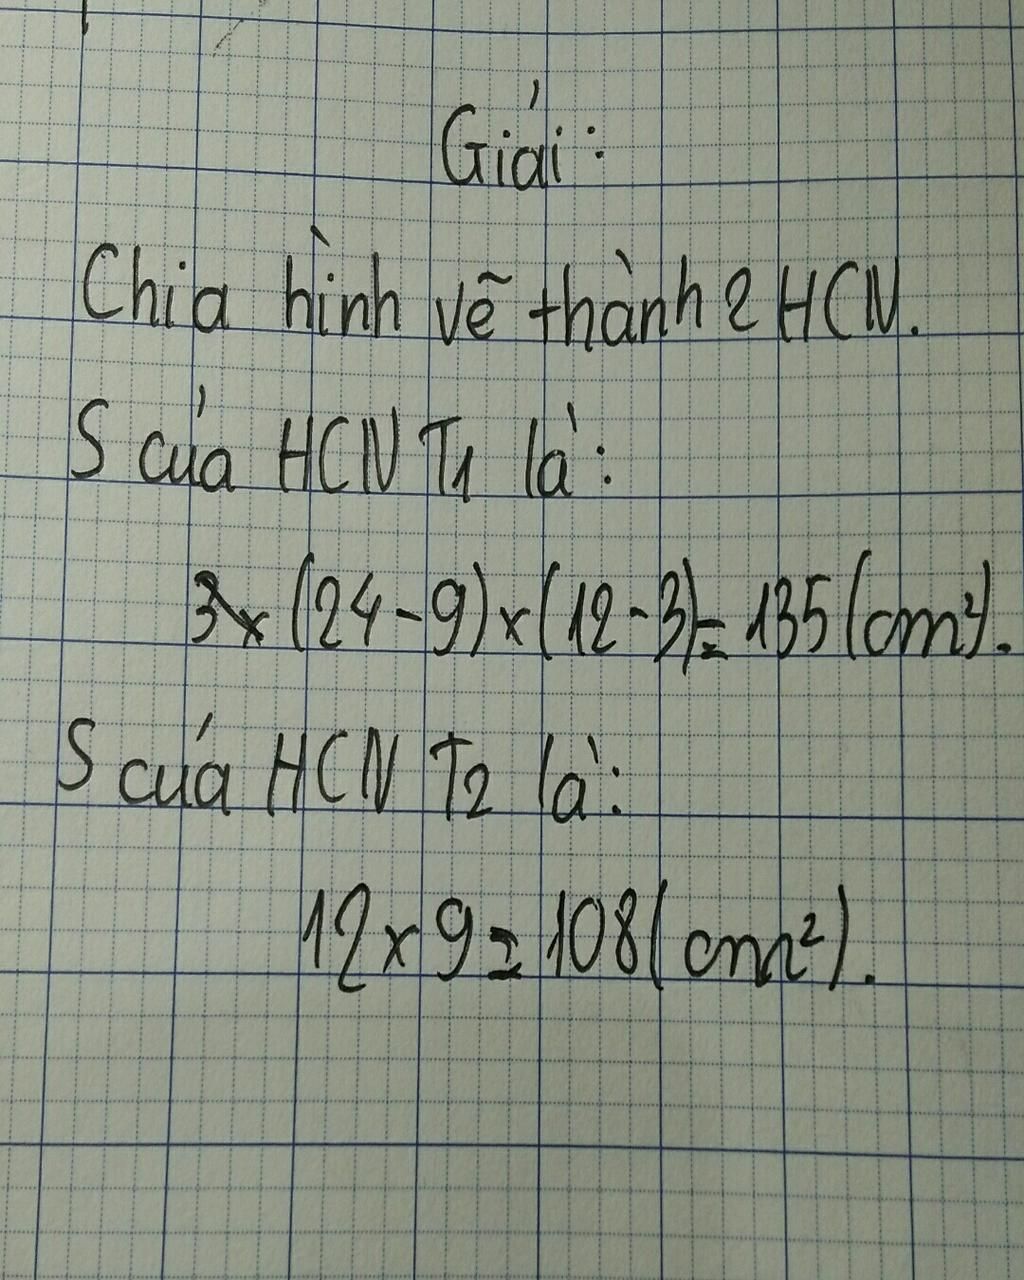 Giải:
Chia hình vẽ thành 2 HCN.
S của HCN T1 là:
3 x (24 - 9) x (12 - 3) = 135 (cm²).
S của HCN T2 là:
12 x 9 = 108 (cm²).